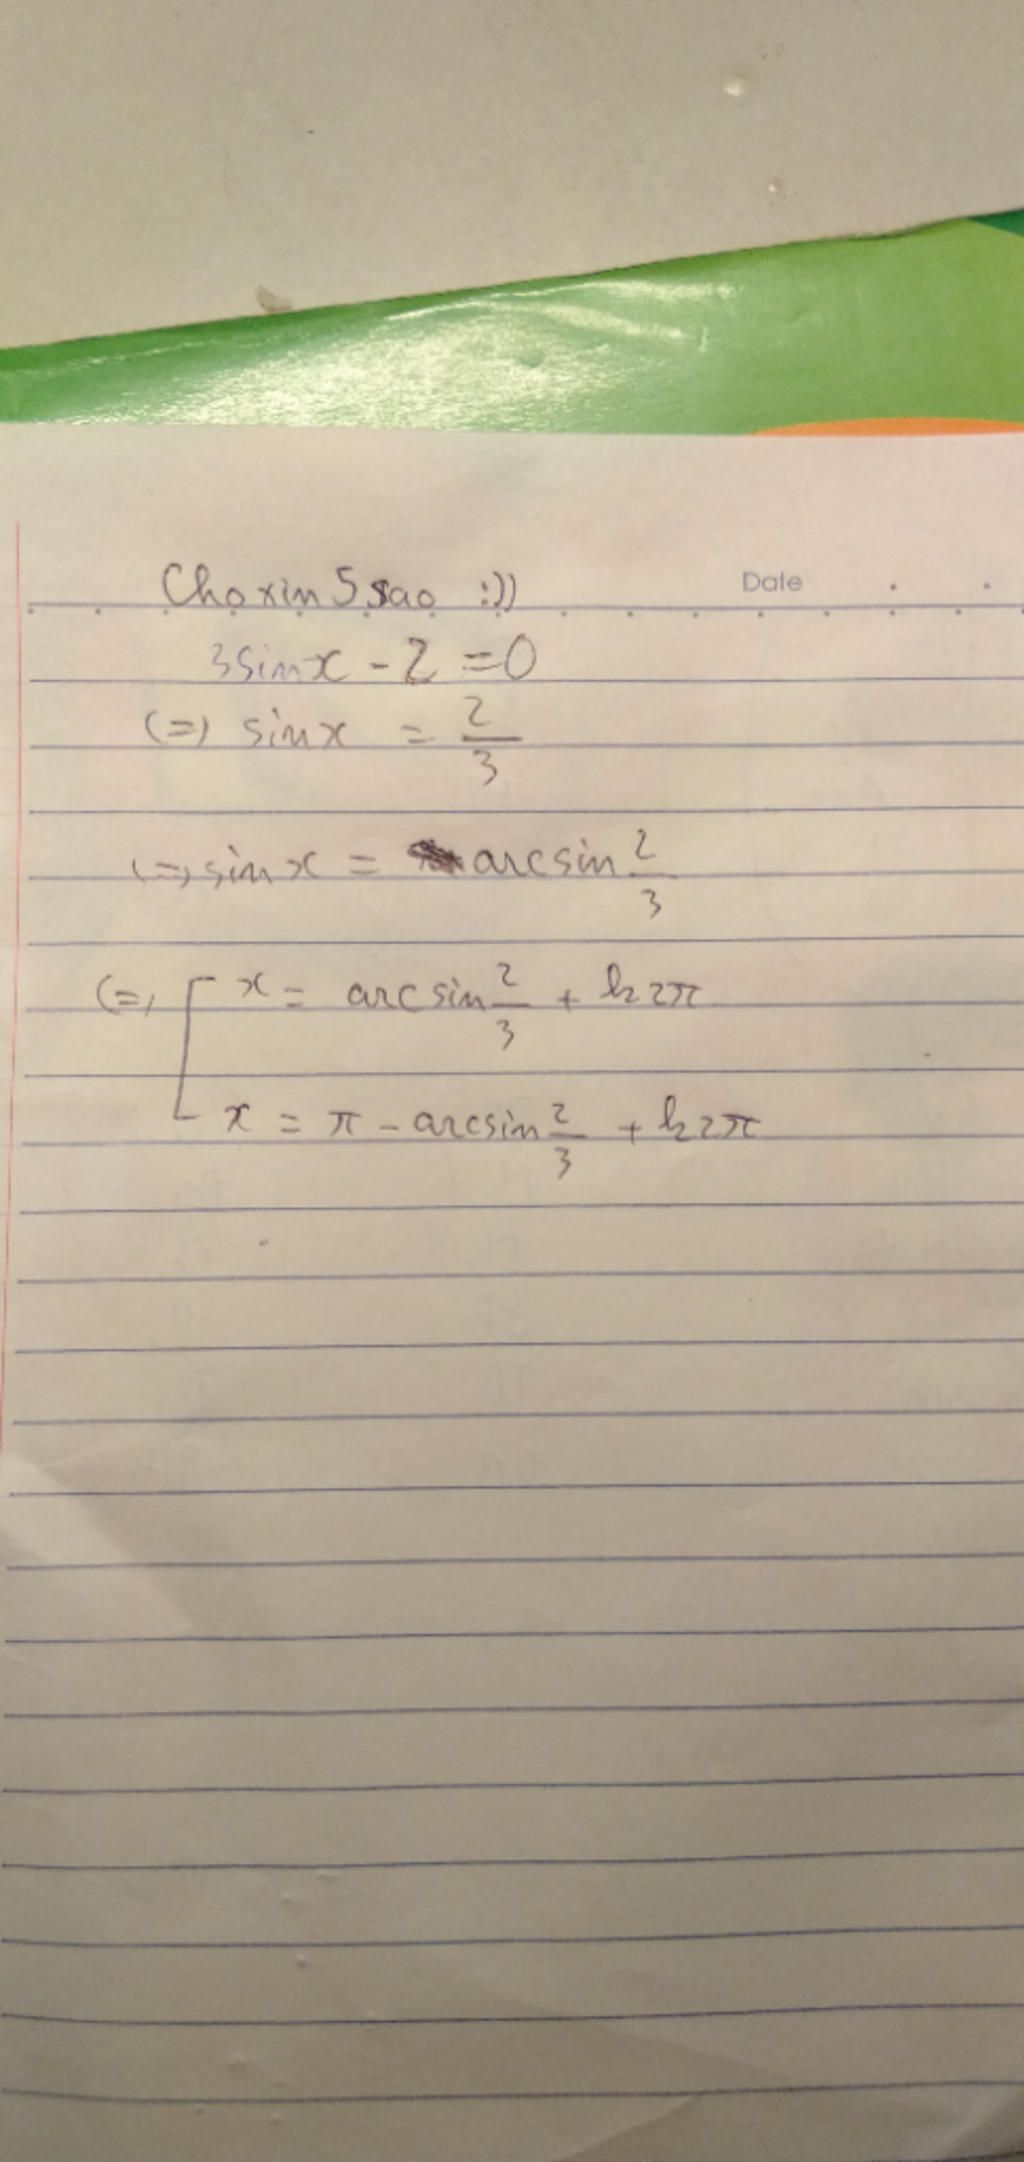 Cho xin 5 sao :))
Date
3sinx - 2 = 0
(=) sinx = 2/3
(=) sinx = arcsin 2/3
(=) [ x = arcsin 2/3 + k2π
x = π - arcsin 2/3 + k2π